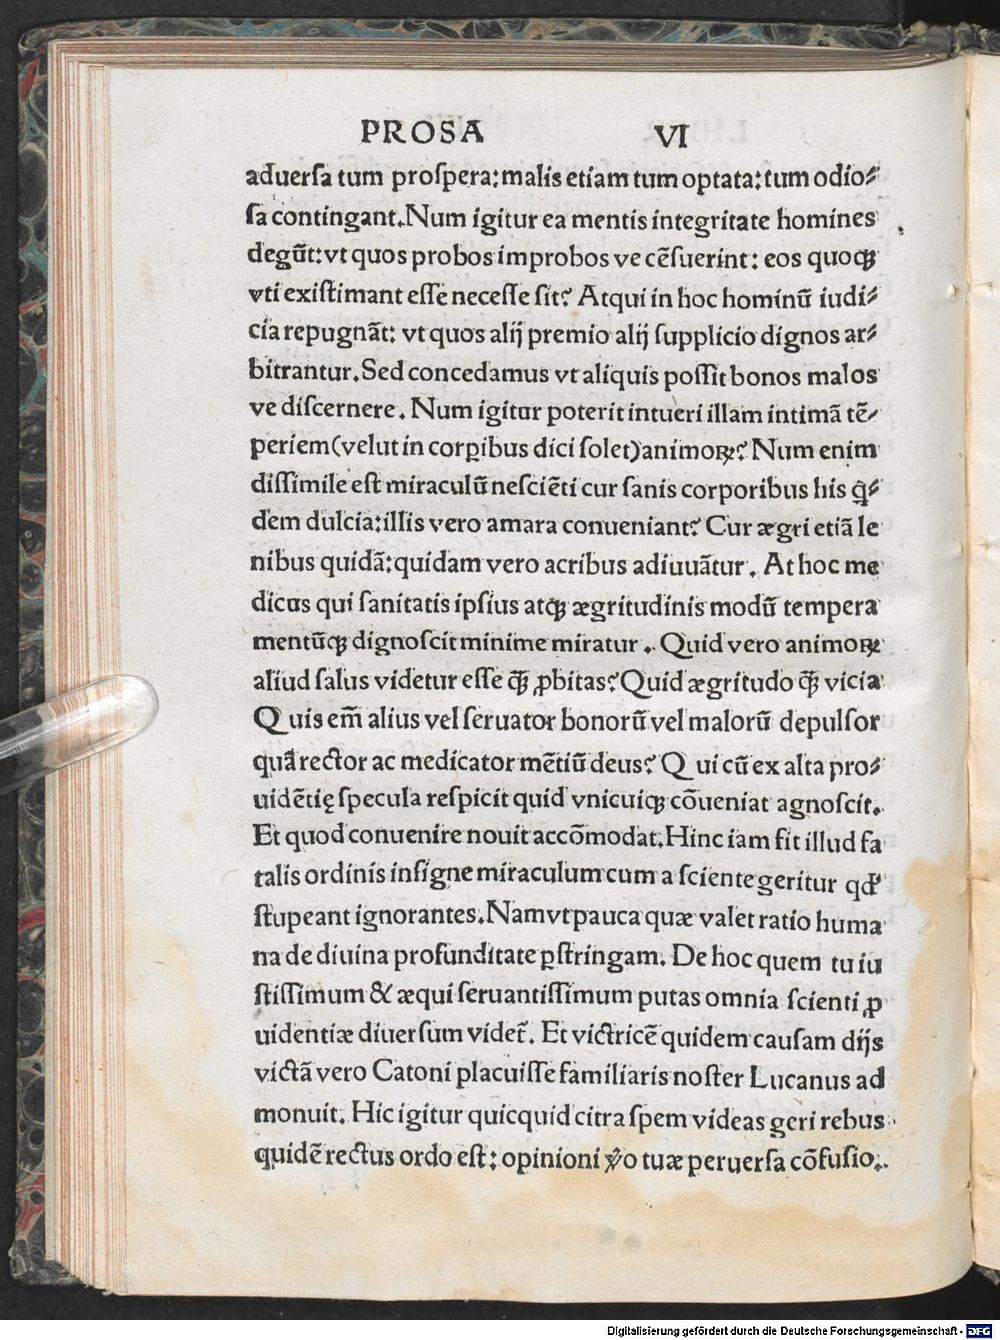 PROSA VI
aduerſa tum proſpera: malis etiam tum optata: tum odio⸗
ſa contingant. Num igitur ea mentis integritate homines
degūt: vt quos probos improbos ve cēſuerint: eos quoqꝫ
vti exiſtimant eſſe neceſſe ſit? Atqui in hoc hominū iudi⸗
cia repugnāt: vt quos alij premio alij ſupplicio dignos ar⸗
bitrantur. Sed concedamus vt aliquis poſſit bonos malos
ve diſcernere. Num igitur poterit intueri illam intimā tē⸗
periem (velut in corꝑibus dici ſolet) animoꝝ? Num enim
diſſimile eſt miraculū neſciēti cur ſanis corporibus his q̄⸗
dem dulcia: illis vero amara conueniant? Cur ægri etiā le
nibus quidā: quidam vero acribus adiuuātur. At hoc me
dicus qui ſanitatis ipſius atqꝫ ægritudinis modū tempera
mentūqꝫ dignoſcit minime miratur. Quid vero animoꝝ
aliud ſalus videtur eſſe qꝫ̄ ꝓbitas? Quid ægritudo qꝫ̄ vicia
Quis em̄ alius vel ſeruator bonorū vel malorū depulſor
quā rector ac medicator mētiū deus? Qui cū ex alta pro⸗
uidētię ſpecula reſpicit quid vnicuiqꝫ cōueniat agnoſcit.
Et quod conuenire nouit accōmodat. Hinc iam fit illud fa
talis ordinis inſigne miraculum cum a ſciente geritur qd̓
ſtupeant ignorantes. Nam vt pauca quæ valet ratio huma
na de diuina profunditate ꝑſtringam. De hoc quem tu iu
ſtiſſimum & æqui ſeruantiſſimum putas omnia ſcienti ꝓ
uidentiæ diuerſum videt̄. Et victricē quidem cauſam dijs
victā vero Catoni placuiſſe familiaris noſter Lucanus ad
monuit. Hic igitur quicquid citra ſpem videas geri rebus
quidē rectus ordo eſt: opinioni ṽo tuæ peruerſa cōfuſio.
Digitalisierung gefördert durch die Deutsche Forschungsgemeinschaft - DFG